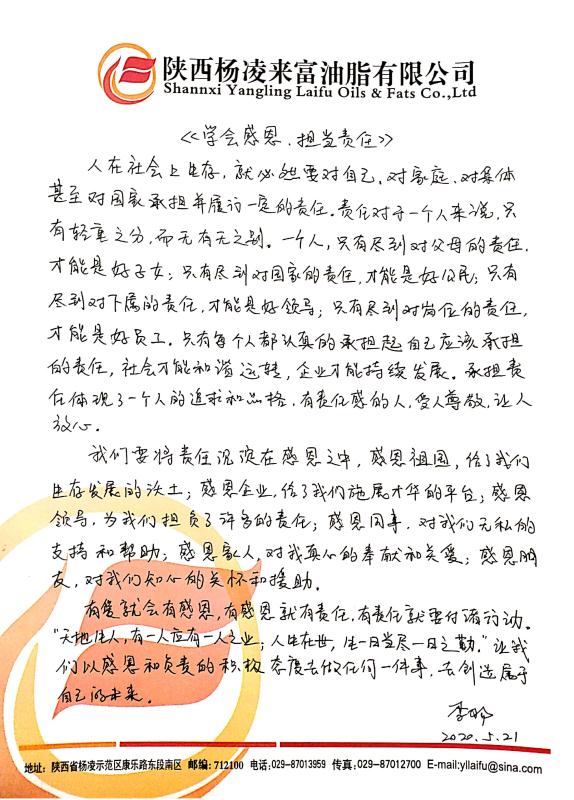 陕西杨凌来富油脂有限公司
Shannxi Yangling Laifu Oils & Fats Co.,Ltd
《学会感恩、担当责任》
人在社会上生存，就必然要对自己、对家庭、对集体
甚至对国家承担并履行一定的责任。责任对于一个人来说，只
有轻重之分，而无有无之别。一个人，只有尽到对父母的责任，
才能是好子女；只有尽到对国家的责任，才能是好公民；只有
尽到对下属的责任，才能是好领导；只有尽到对岗位的责任，
才能是好员工。只有每个人都认真的承担起自己应该承担
的责任，社会才能和谐运转，企业才能持续发展。承担责
任体现了一个人的追求和品格，有责任感的人，受人尊敬，让人
放心。
我们要将责任沉淀在感恩之中，感恩祖国，给了我们
生存发展的沃土；感恩企业，给了我们施展才华的平台；感恩
领导，为我们担负了许多的责任；感恩同事，对我们无私的
支持和帮助；感恩家人，对我真心的奉献和关爱；感恩朋
友，对我们知心的关怀和援助。
有爱就会有感恩，有感恩就有责任，有责任就要付诸行动。
“天地生人，有一人应有一人之业；人生在世，生一日当尽一日之勤。”让我
们以感恩和负责的积极态度去做任何一件事，去创造属于
自己的未来。
李明
2020.5.21
地址：陕西省杨凌示范区康乐路东段南区 邮编：712100 电话：029-87013959 传真：029-87012700 E-mail:yllaifu@sina.com